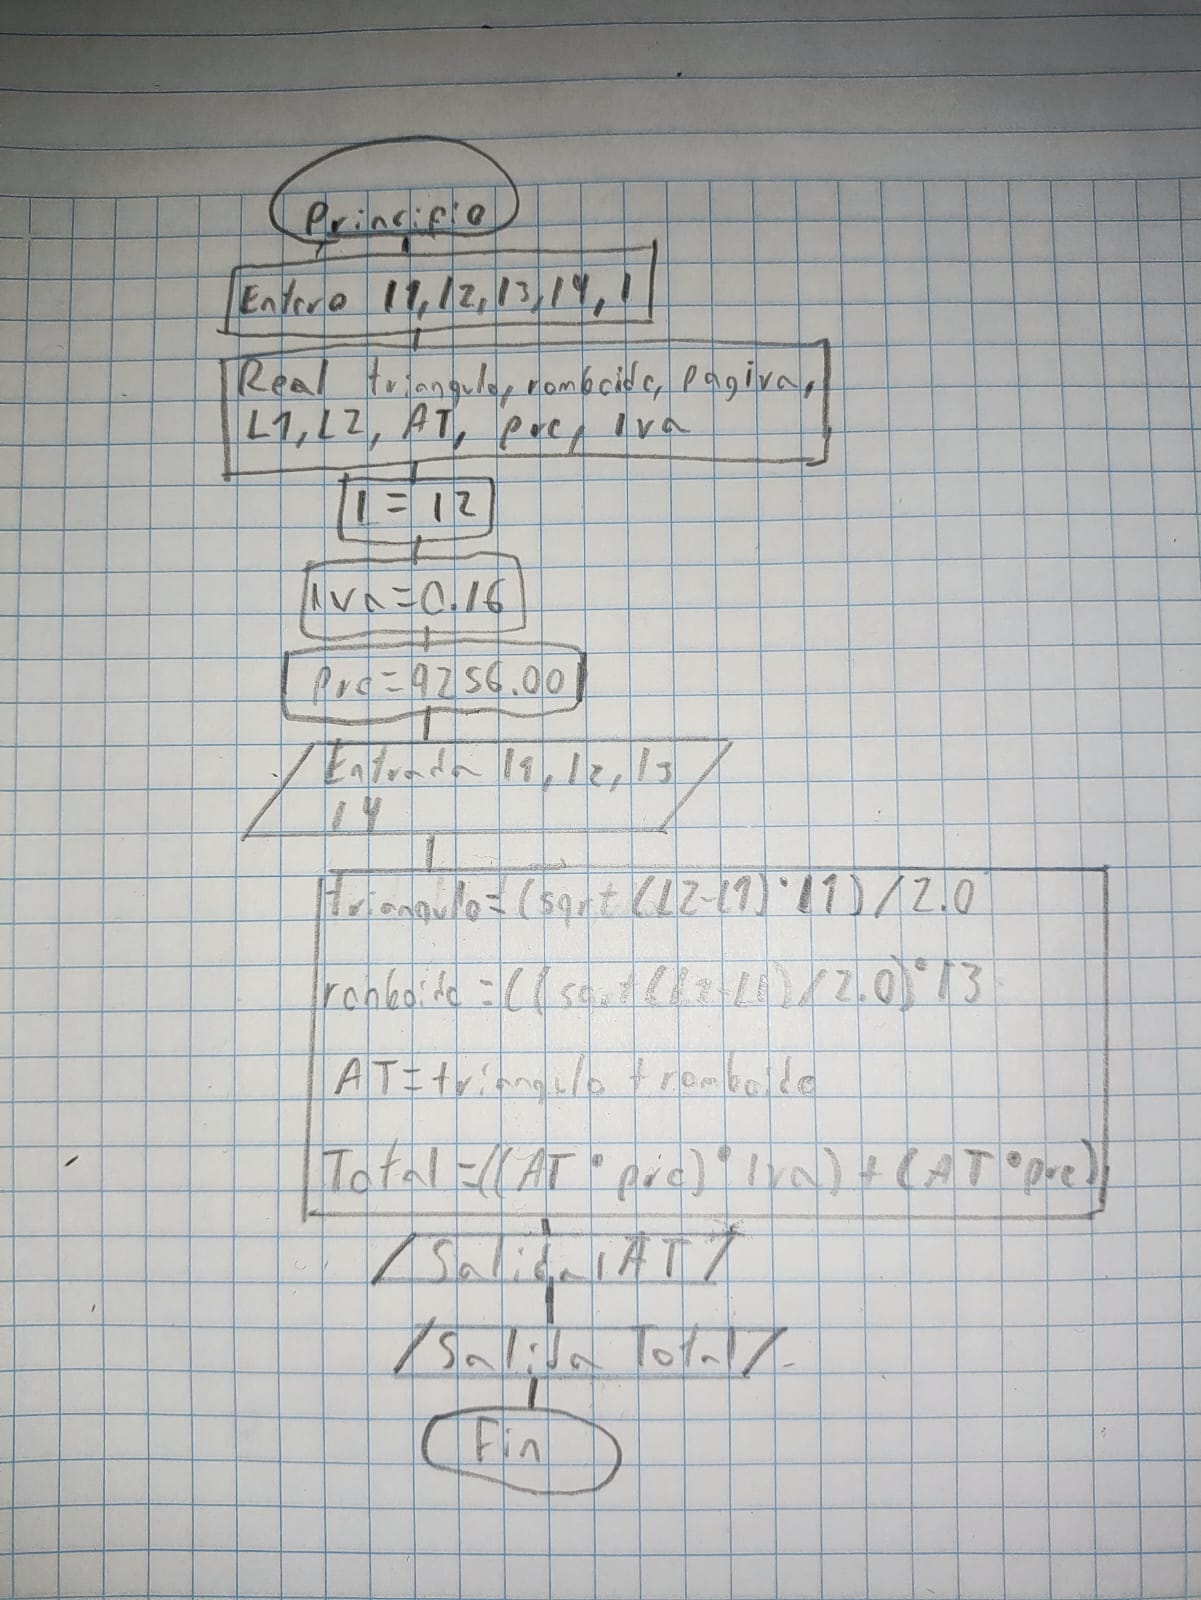 Principio
Entero l1, l2, l3, l4, l
Real triangulo, romboide, pagiva,
L1, L2, AT, pre, iva
L = 12
iva=0.16
pre=9256.00
Entrada l1, l2, l3
l4
triangulo=(sqrt(L2-L1)*l1)/2.0
romboide=((sqrt(L2-L1)/2.0)*l3
AT=triangulo+romboide
Total=((AT*pre)*iva)+(AT*pre)
Salida AT
Salida Total
Fin